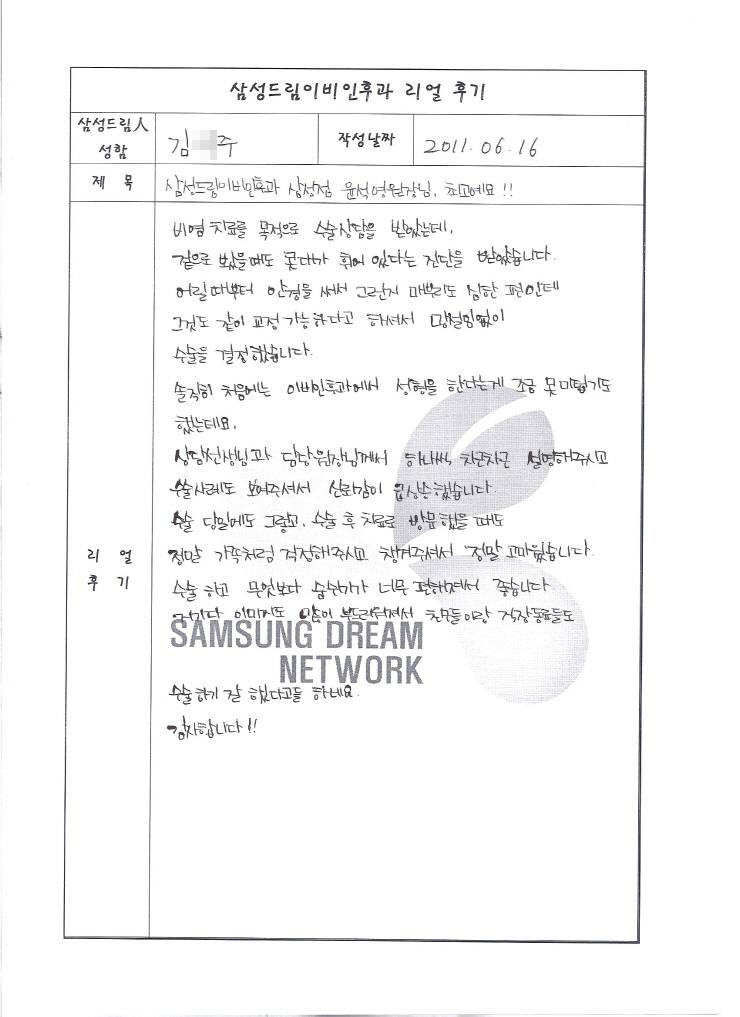 삼성드림이비인후과 리얼 후기
삼성드림人
성함
김 주
작성날짜
2011. 06. 16
제 목
삼성드림이비인후과 삼성점 윤석영원장님, 최고예요!!
비염 치료를 목적으로 수술상담을 받았는데,
겉으로 보았을때도 콧대가 휘어 있다는 진단을 받았습니다.
어릴때부터 안경을 써서 그런지 매부리도 심한 편인데
그것도 같이 교정 가능하다고 하셔서 망설임없이
수술을 결정했습니다.
솔직히 처음에는 이비인후과에서 성형을 한다는게 조금 못미덥기도
했는데요,
상담선생님과 담당원장님께서 하나씩 차근차근 설명해주시고
수술사례도 보여주셔서 신뢰감이 급상승했습니다.
수술 당일에도 그렇고, 수술 후 치료로 방문했을 때도
정말 가족처럼 걱정해주시고 챙겨주셔서 정말 고마웠습니다.
리 얼
후 기
수술 하고 무엇보다 숨쉬기가 너무 편해져서 좋습니다.
이미지도 많이 부드러워져서 친구들이랑 직장동료들도
SAMSUNG DREAM
NETWORK
수술하기 잘 했다고들 하네요.
감사합니다!!